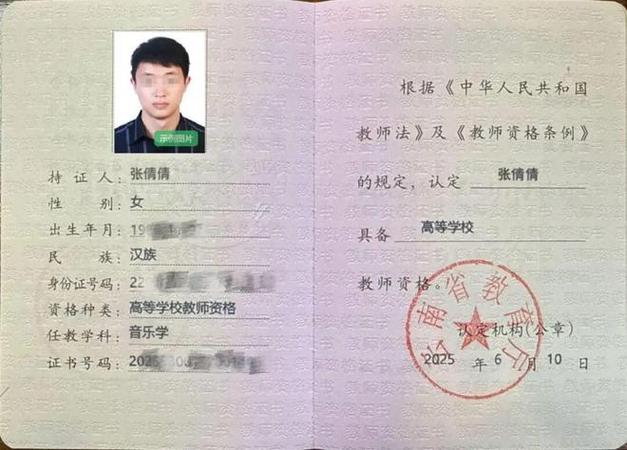 示例图片
持 证 人：张倩倩
性 别：女
出生年月：19
民 族：汉族
身份证号码：22
资格种类：高等学校教师资格
任教学科：音乐学
证书号码：202
根据《中华人民共和国
教师法》及《教师资格条例》
的规定，认定 张倩倩
具备 高等学校
教师资格。
南省教育厅
认定机构(公章)
2025 年 6 月 10 日